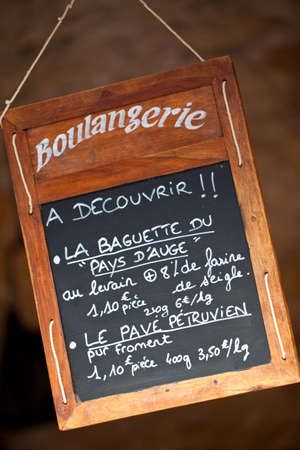 Boulangerie
A DECOUVRIR !!
• LA BAGUETTE DU
"PAYS D'AUGE"
au levain ⊕ 8% de farine
de seigle.
1,10€ pièce 250g 6€/kg
• LE PAVÉ PÉTRUVIEN
pur froment
1,10€ pièce 400g 3,50€/kg